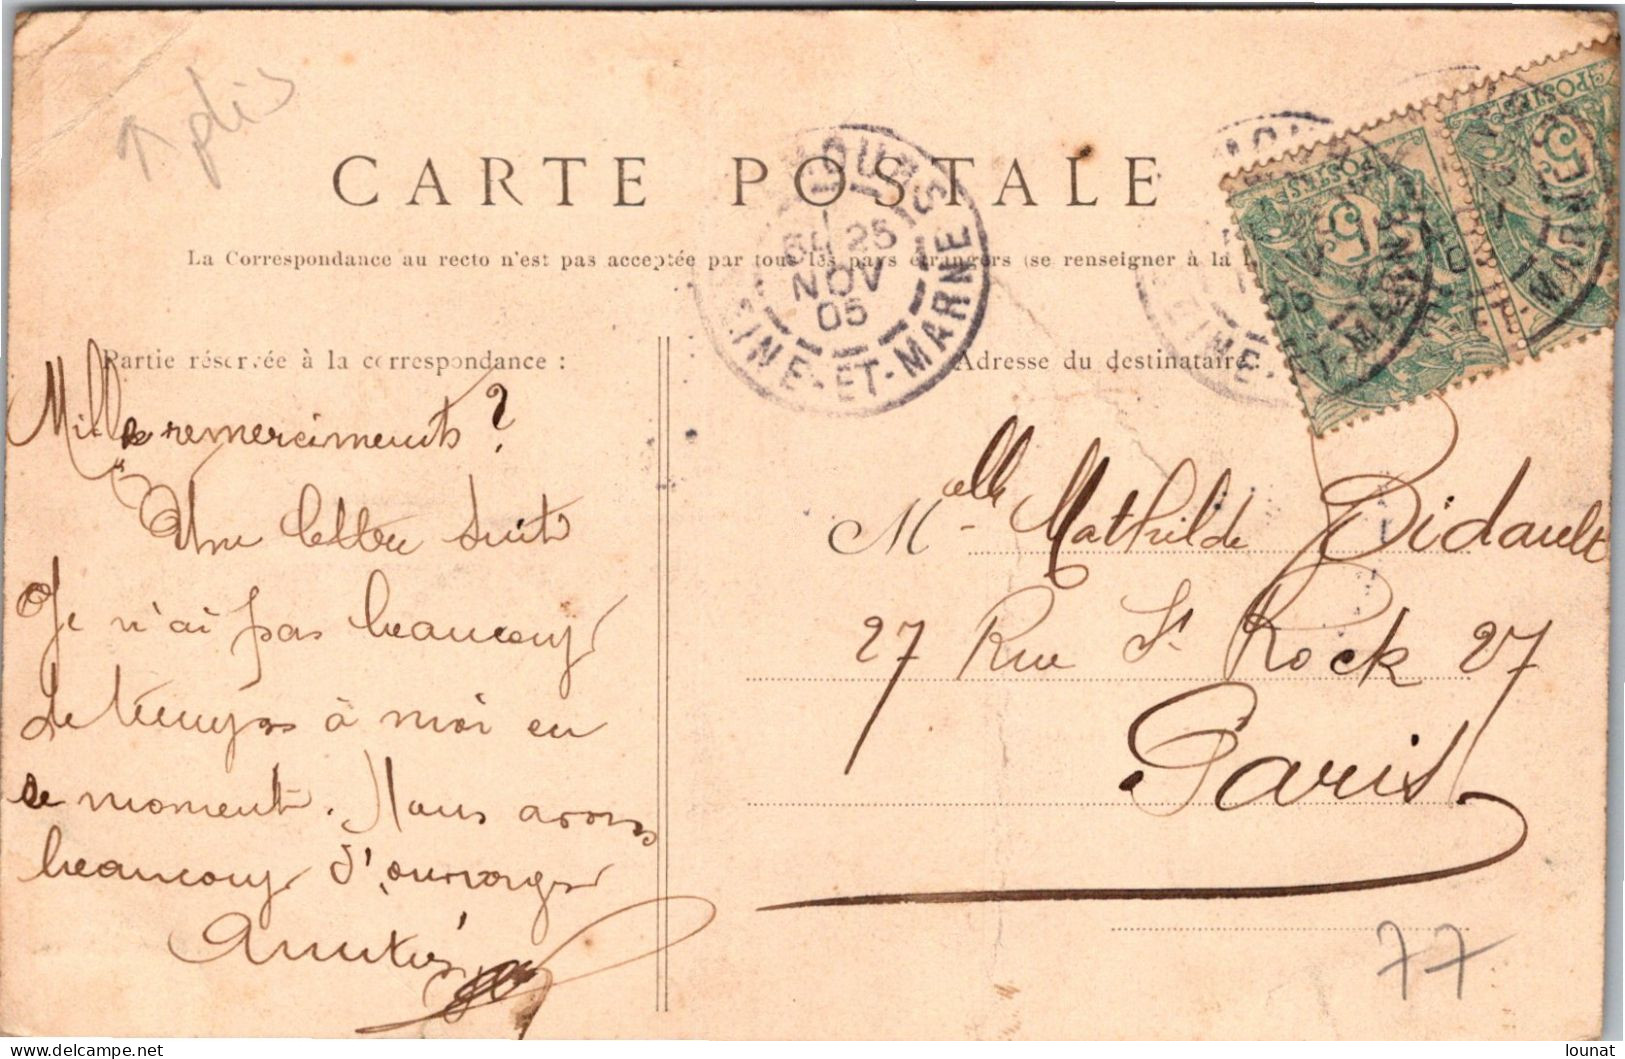 plis
CARTE POSTALE
La Correspondance au recto n'est pas acceptée par tous les pays étrangers (se renseigner à la
Partie réservée à la correspondance :
Adresse du destinataire :
8E 25
NOV
05
SEINE-ET-MARNE
POSTES
5
POSTES
5
Mille remerciments?
Une lettre suit
Je n'ai pas beaucoup
de temps à moi en
ce moment. Nous avons
beaucoup d'ouvrage
Amitiés
Melle Mathilde Bidault
27 Rue St Rock 27
Paris
77
delcampe.net
lounat